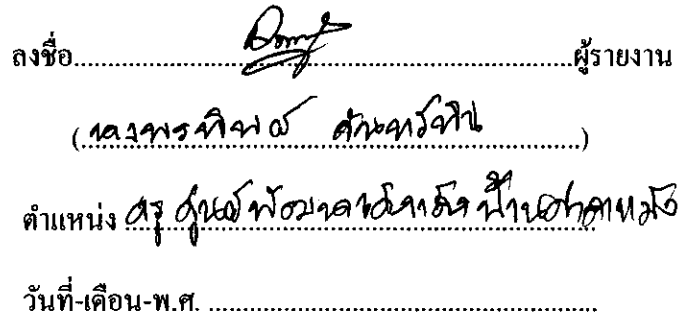 ลงชื่อ..............................ผู้รายงาน
(นางพรทิพย์ )
ตำแหน่ง ครู ศูนย์พัฒนาเด็กเล็กบ้าน
วันที่-เดือน-พ.ศ. ..............................